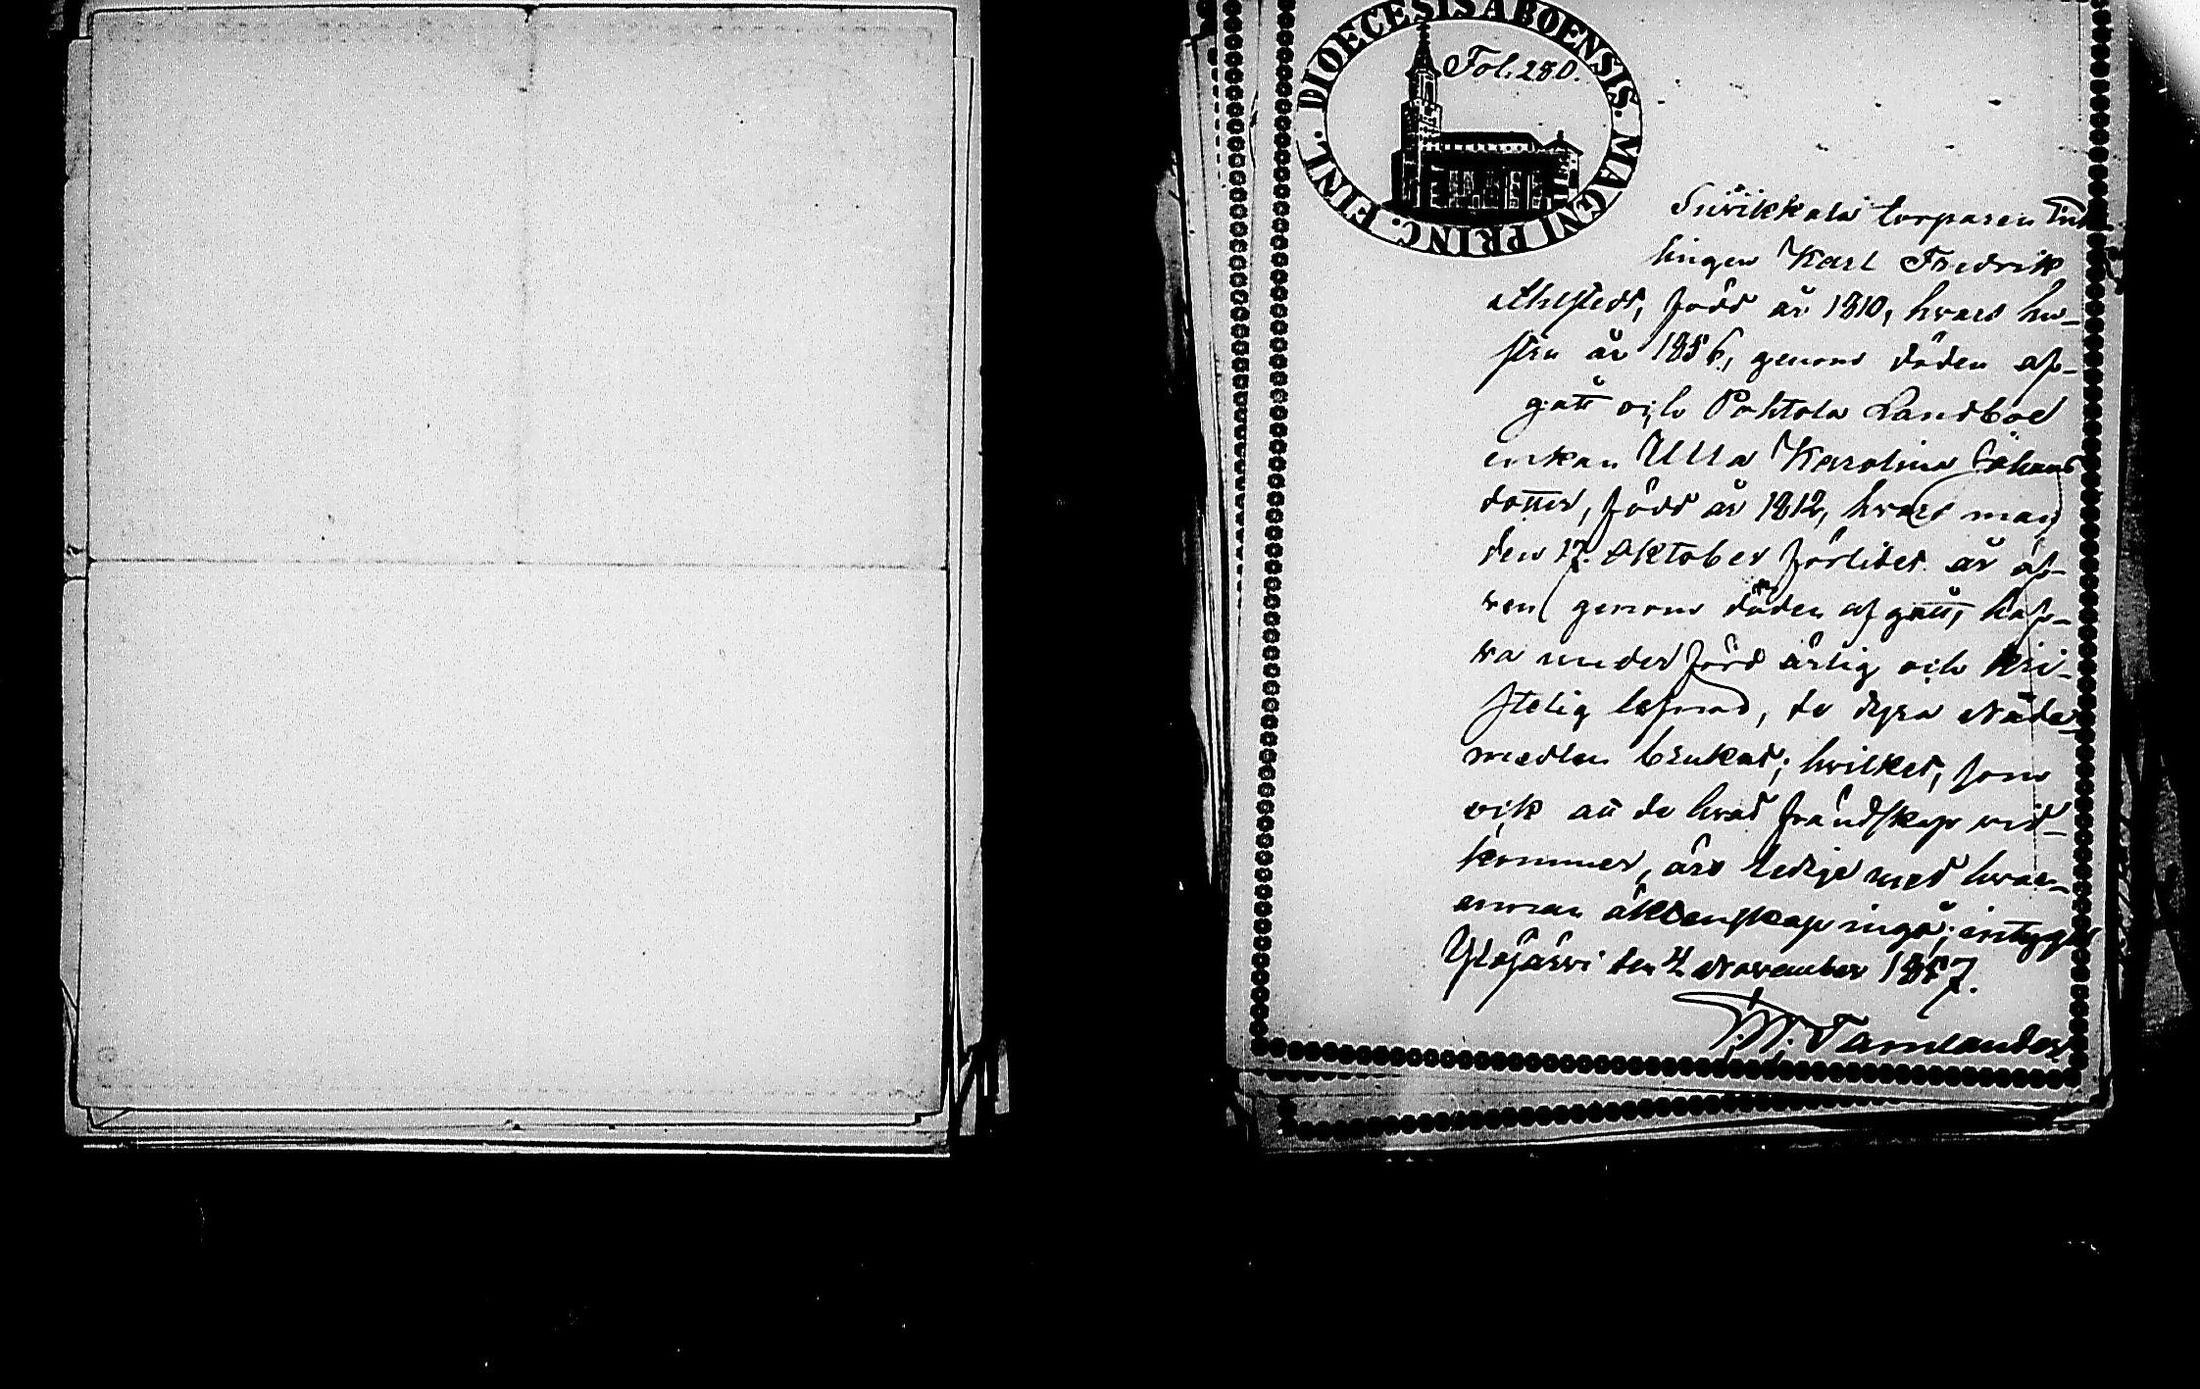 DIOECESIS ABOENSIS. MAGNI PRINC. FINL.
Fol. 280.
torparen Enk
lingen Karl Fredrik
Ahlstedt, född år 1810, hvars hu-
stru år 1856, genom döden af-
gått och Pohtola Landbod
enkan Ulla Karolina Johans
dotter, född år 1812, hvars man
den 17. Oktober förlidet år äf-
ven genom döden afgått, haf-
va under förd ärlig och kri-
stelig lefnad, de dyra Nåde
medlen brukat; hvilket, som
ock att de hvad frändskap vid-
kommer, äro ledige med hvar-
annan äktenskap ingå; intygar
Ylöjärvi den 4 November 1857.
Tamlander